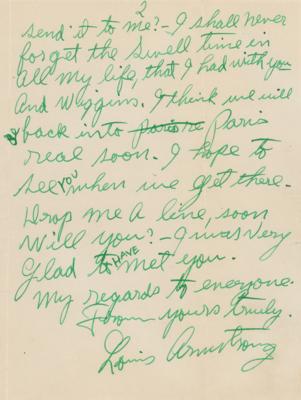 2
send it to me?-I shall never
forget the swell time in
all my life, that I had with you
And Wiggins. I think we will
be back into Paris
real soon. I hope to
see you when we get there.
Drop me a line, soon
Will you?-I was very
Glad to have met you.
My regards to everyone.
From yours truly.
Louis Armstrong